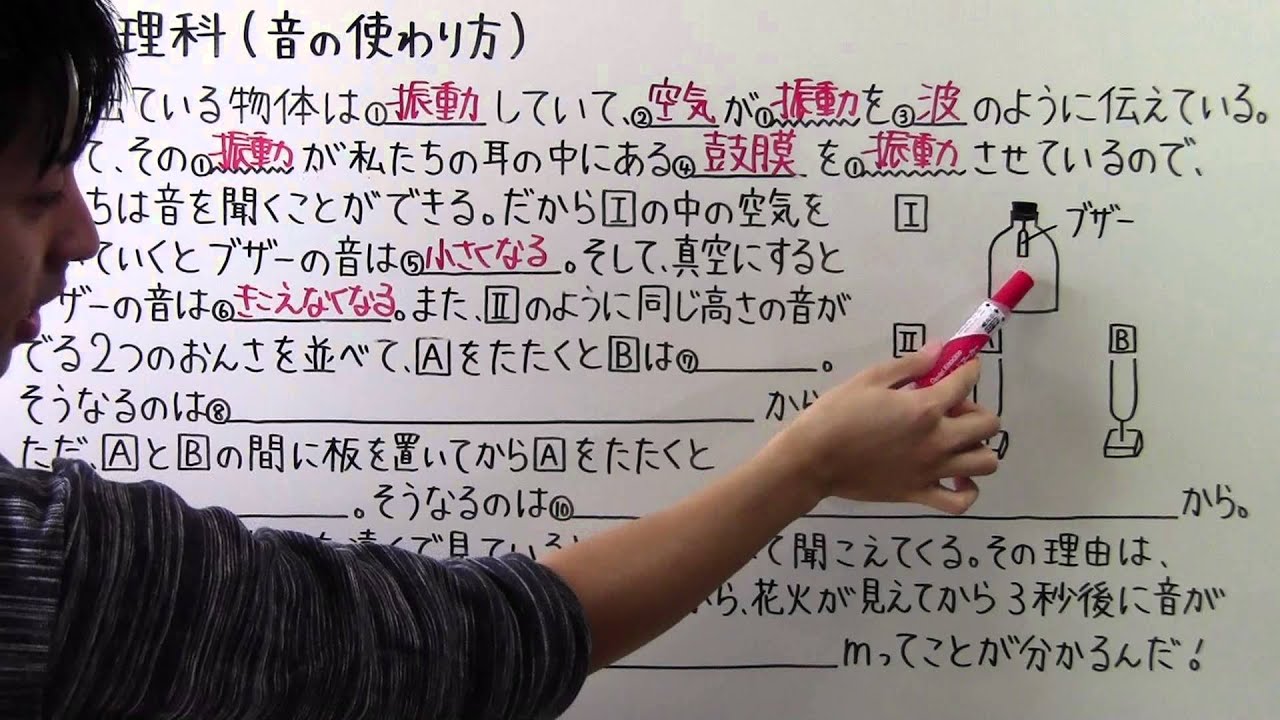 理科(音の使わり方)
出ている物体は①振動していて、②空気が①振動を③波のように伝えている。
て、その①振動が私たちの耳の中にある④鼓膜を①振動させているので、
ちは音を聞くことができる。だからⅠの中の空気を
いていくとブザーの音は⑤小さくなる。そして、真空にすると
ザーの音は⑥きこえなくなる。また、Ⅱのように同じ高さの音が
でる2つのおんさを並べて、AをたたくとBは⑦ 。
そうなるのは⑧ から
ただ、AとBの間に板を置いてからAをたたくと
。そうなるのは⑩ から。
遠くで見ていると て聞こえてくる。その理由は、
から、花火が見えてから3秒後に音が
mってことが分かるんだ!
Ⅰ
ブザー
Ⅱ
A
B